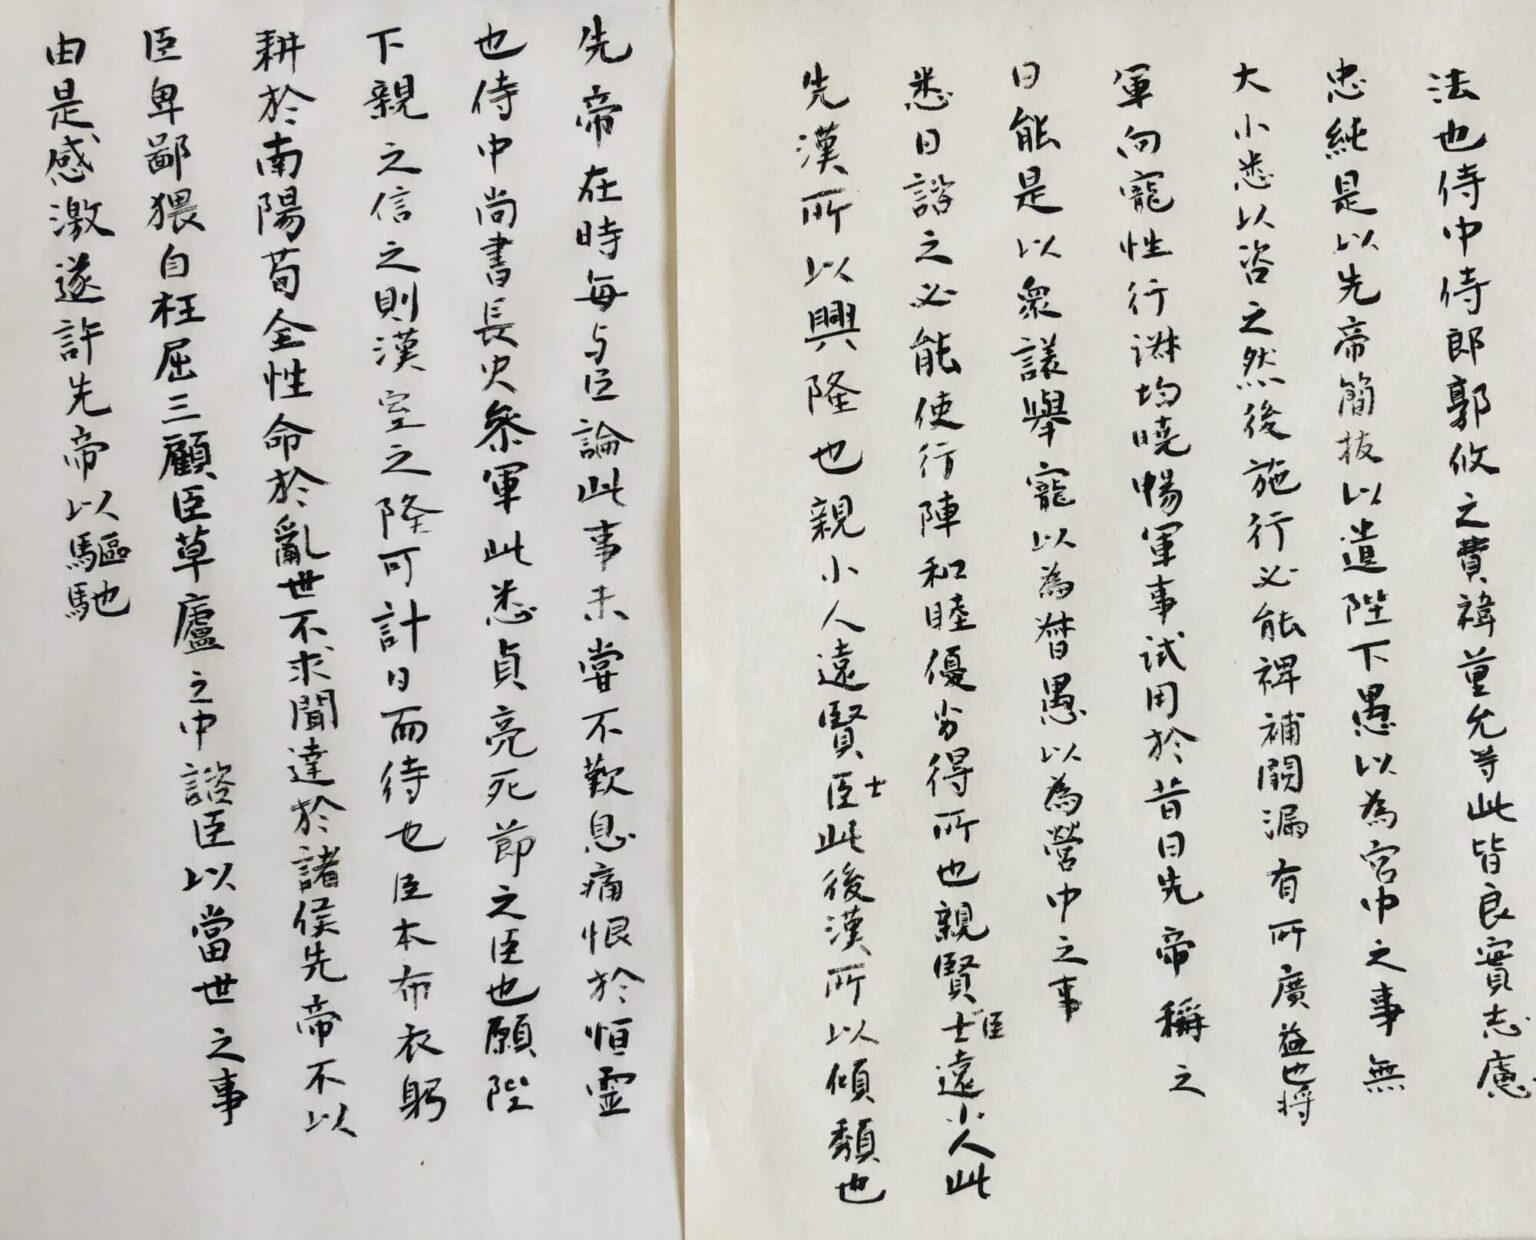 法也侍中侍郎郭攸之費禕董允等此皆良實志慮
忠純是以先帝簡拔以遺陛下愚以為宮中之事無
大小悉以咨之然後施行必能裨補闕漏有所廣益也將
軍向寵性行淋均曉暢軍事試用於昔日先帝稱之
曰能是以眾議舉寵以為督愚以為營中之事
悉日諮之必能使行陣和睦優劣得所也親賢士臣遠小人此
先漢所以興隆也親小人遠賢臣士此後漢所以傾頹也
先帝在時每与臣論此事未嘗不歎息痛恨於恒靈
也侍中尚書長史參軍此悉貞亮死節之臣也願陛
下親之信之則漢室之隆可計日而待也臣本布衣躬
耕於南陽苟全性命於亂世不求聞達於諸侯先帝不以
臣卑鄙猥自枉屈三顧臣草廬之中諮臣以當世之事
由是感激遂許先帝以驅馳